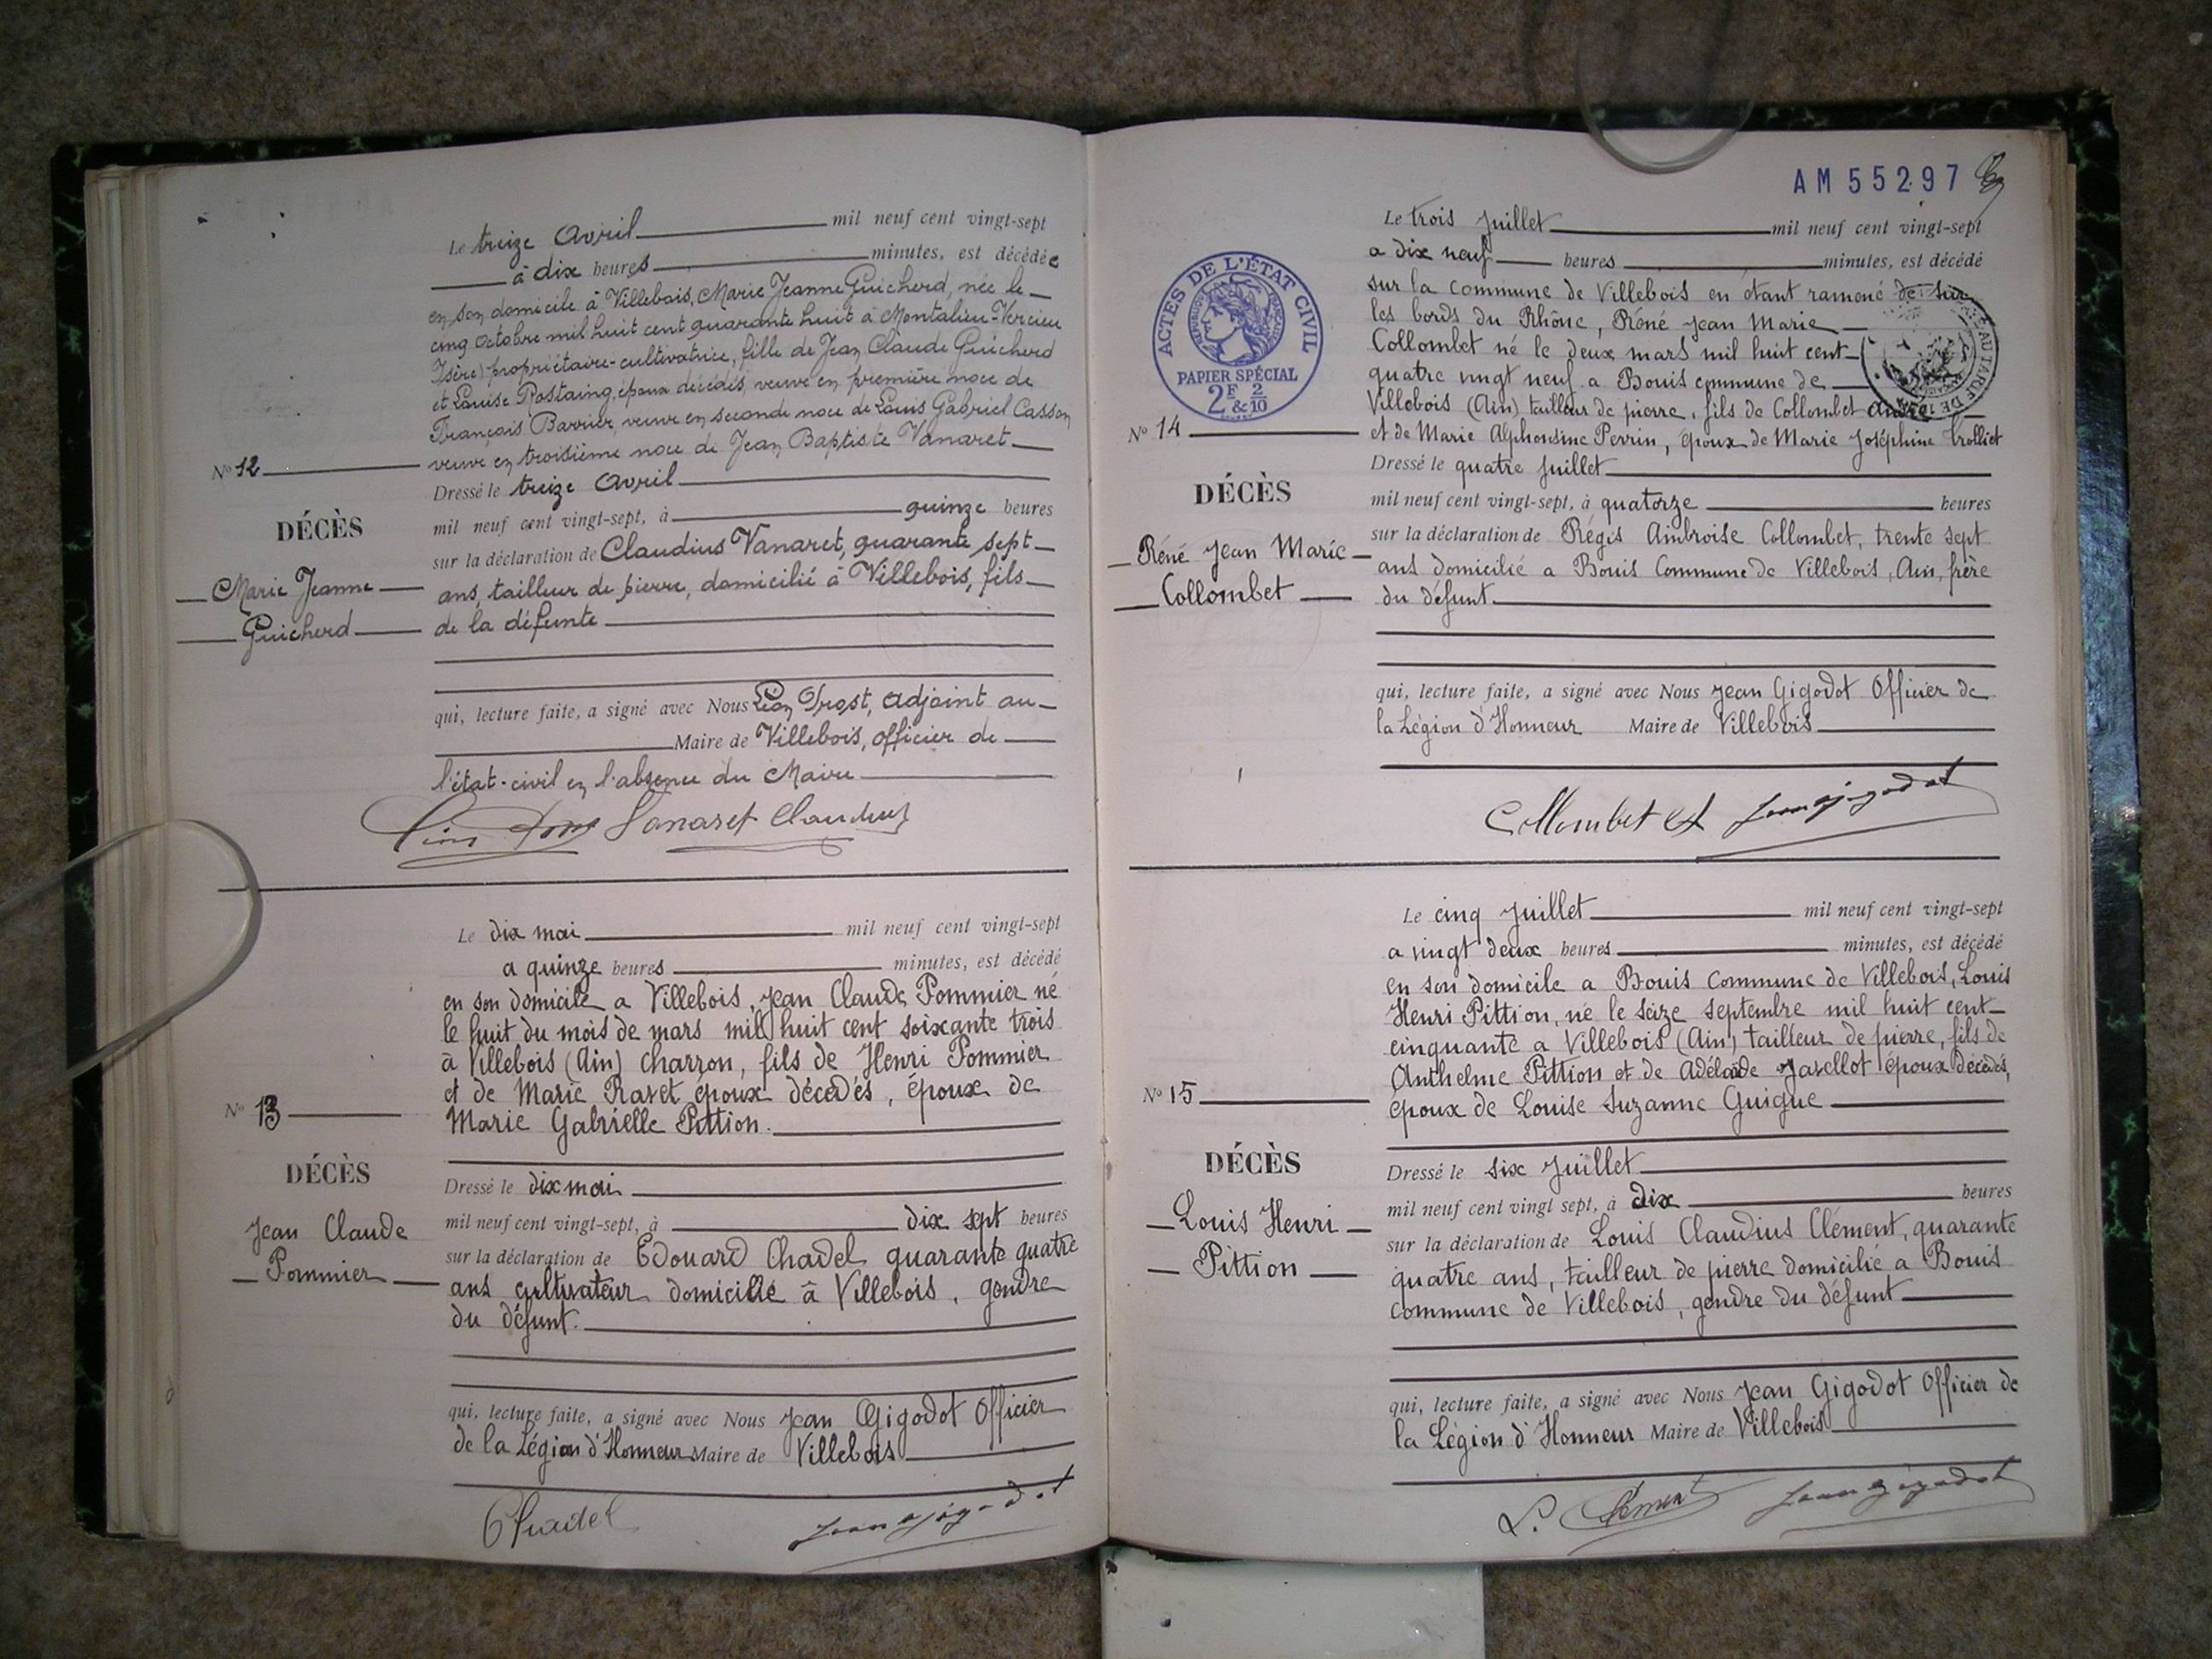 Le treize Avril mil neuf cent vingt-sept
à dix heures minutes, est décédée
en son domicile à Villebois, Marie Jeanne Guicherd, née le
cinq Octobre mil huit cent quarante huit à Montalieu-Vercieu
Isère) propriétaire-cultivatrice, fille de Jean Claude Guicherd
et Louise Rostaing, époux décédés, veuve en première noce de
François Barrier, veuve en seconde noce de Louis Gabriel Casson
veuve en troisième noce de Jean Baptiste Vanaret
No 12
Dressé le treize Avril
DÉCÈS
mil neuf cent vingt-sept, à quinze heures
sur la déclaration de Claudius Vanaret, quarante sept
Marie Jeanne
ans, tailleur de pierre, domicilié à Villebois, fils
Guicherd
de la défunte
qui, lecture faite, a signé avec Nous Léon Prost, adjoint au
Maire de Villebois, officier de
l'état-civil en l'absence du Maire
Vanaret Claudius
Le dix mai mil neuf cent vingt-sept
a quinze heures minutes, est décédé
en son domicile a Villebois, Jean Claude Pommier né
le huit du mois de mars mil huit cent soixante trois
à Villebois (Ain) charron, fils de Henri Pommier
et de Marie Ravet époux décédés, époux de
No 13
Marie Gabrielle Pittion.
DÉCÈS
Dressé le dix mai
mil neuf cent vingt-sept, à dix sept heures
Jean Claude
Pommier
sur la déclaration de Edouard Chadel quarante quatre
ans cultivateur domicilié à Villebois, gendre
du défunt.
qui, lecture faite, a signé avec Nous Jean Gigodot Officier
de la Légion d'Honneur Maire de Villebois
Chadel Jean Gigodot
AM 55297
ACTES DE L'ÉTAT CIVIL
RÉPUBLIQUE FRANÇAISE
PAPIER SPÉCIAL
2F & 2/10
Le trois Juillet mil neuf cent vingt-sept
a dix neuf heures minutes, est décédé
sur la commune de Villebois en étant ramené de sur
les bords du Rhône, Réné Jean Marie
Collombet né le deux mars mil huit cent
quatre vingt neuf a Bouis commune de
Villebois (Ain) tailleur de pierre, fils de Collombet
No 14
et de Marie Alphonsine Perrin, époux de Marie Joséphine Trolliet
Dressé le quatre Juillet
DÉCÈS
mil neuf cent vingt-sept, à quatorze heures
sur la déclaration de Régis Ambroise Collombet, trente sept
Réné Jean Marie
ans domicilié a Bouis Commune de Villebois, Ain, frère
Collombet
du défunt
qui, lecture faite, a signé avec Nous Jean Gigodot Officier de
la Légion d'Honneur Maire de Villebois
Collombet Jean Gigodot
Le cinq Juillet mil neuf cent vingt-sept
a vingt deux heures minutes, est décédé
en son domicile a Bouis Commune de Villebois, Louis
Henri Pittion, né le seize septembre mil huit cent
cinquante a Villebois (Ain) tailleur de pierre, fils de
Anthelme Pittion et de Adélaïde Javellot époux décédés,
No 15
époux de Louise Suzanne Guigue
DÉCÈS
Dressé le six Juillet
mil neuf cent vingt sept, à dix heures
Louis Henri
sur la déclaration de Louis Claudius Clément, quarante
Pittion
quatre ans, tailleur de pierre domicilié a Bouis
commune de Villebois, gendre du défunt
qui, lecture faite, a signé avec Nous Jean Gigodot Officier de
la Légion d'Honneur Maire de Villebois
L. Clément Jean Gigodot